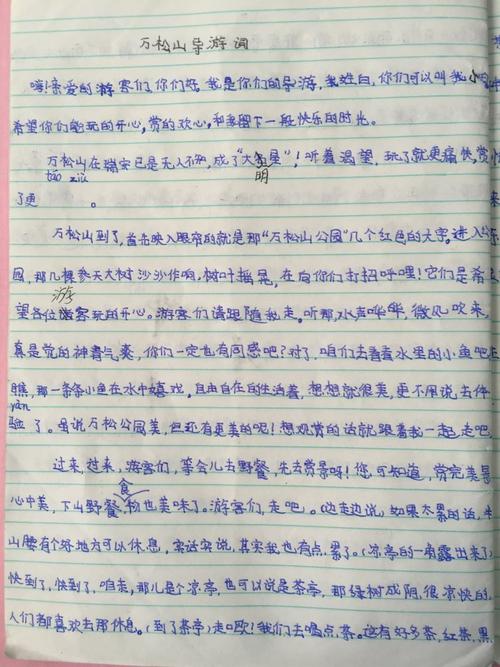 万松山导游词
嗨!亲爱的游客们,你们好,我是你们的导游,我姓白,你们可以叫我小
希望你们能玩的开心,赏的欢心,和 留下一段快乐的时光。
万松山在瑞安已是无人不知,成了“大明星”!听着渴望,玩了就更痛快,赏
táo zuì
了更 。
万松山到了,首先映入眼帘的就是那“万松山公园”几个红色的大字。进入公
园,那几棵参天大树沙沙作响,树叶摇晃,在向你们打招呼哩!它们是希
望各位游客玩的开心。游客们请跟随我走。听那,水声哗哗,微风吹来,
真是觉的神清气爽,你们一定也有同感吧?对了,咱们去看看水里的小鱼吧
瞧,那一条条小鱼在水中嬉戏,自由自在的生活着,想想就很美,更不用说去体
yàn
验了。虽说万松公园美,但还有更美的呢!想观赏的话就跟着我一起走吧
过来,过来,游客们,等会儿去野餐,先去赏景呀!您,可知道,赏完美景
心中美,下山野餐,食物也美味了。游客们,走吧。(边走边说)如果太累的话,半
山腰有个好地方可以休息,实话实说,其实我也有点累了。(凉亭的一角露出来了)
快到了,快到了,咱走,那儿是个凉亭,也可以说是茶亭,那绿树成阴,很凉快的,
人们都喜欢去那休息。(到了茶亭)走口欧!我们去喝点茶。这有好多茶,红茶,黑